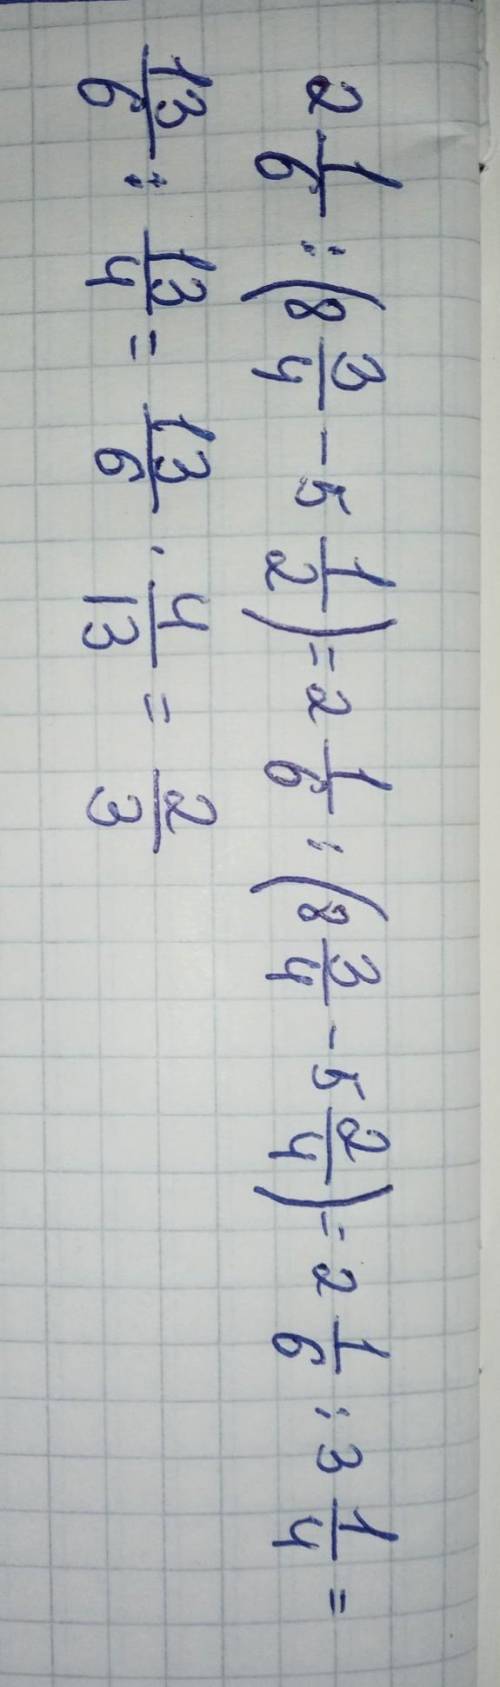 2 1/6 : (8 3/4 - 5 1/2) = 2 1/6 : (8 3/4 - 5 2/4) = 2 1/6 : 3 1/4 =
13/6 : 13/4 = 13/6 · 4/13 = 2/3